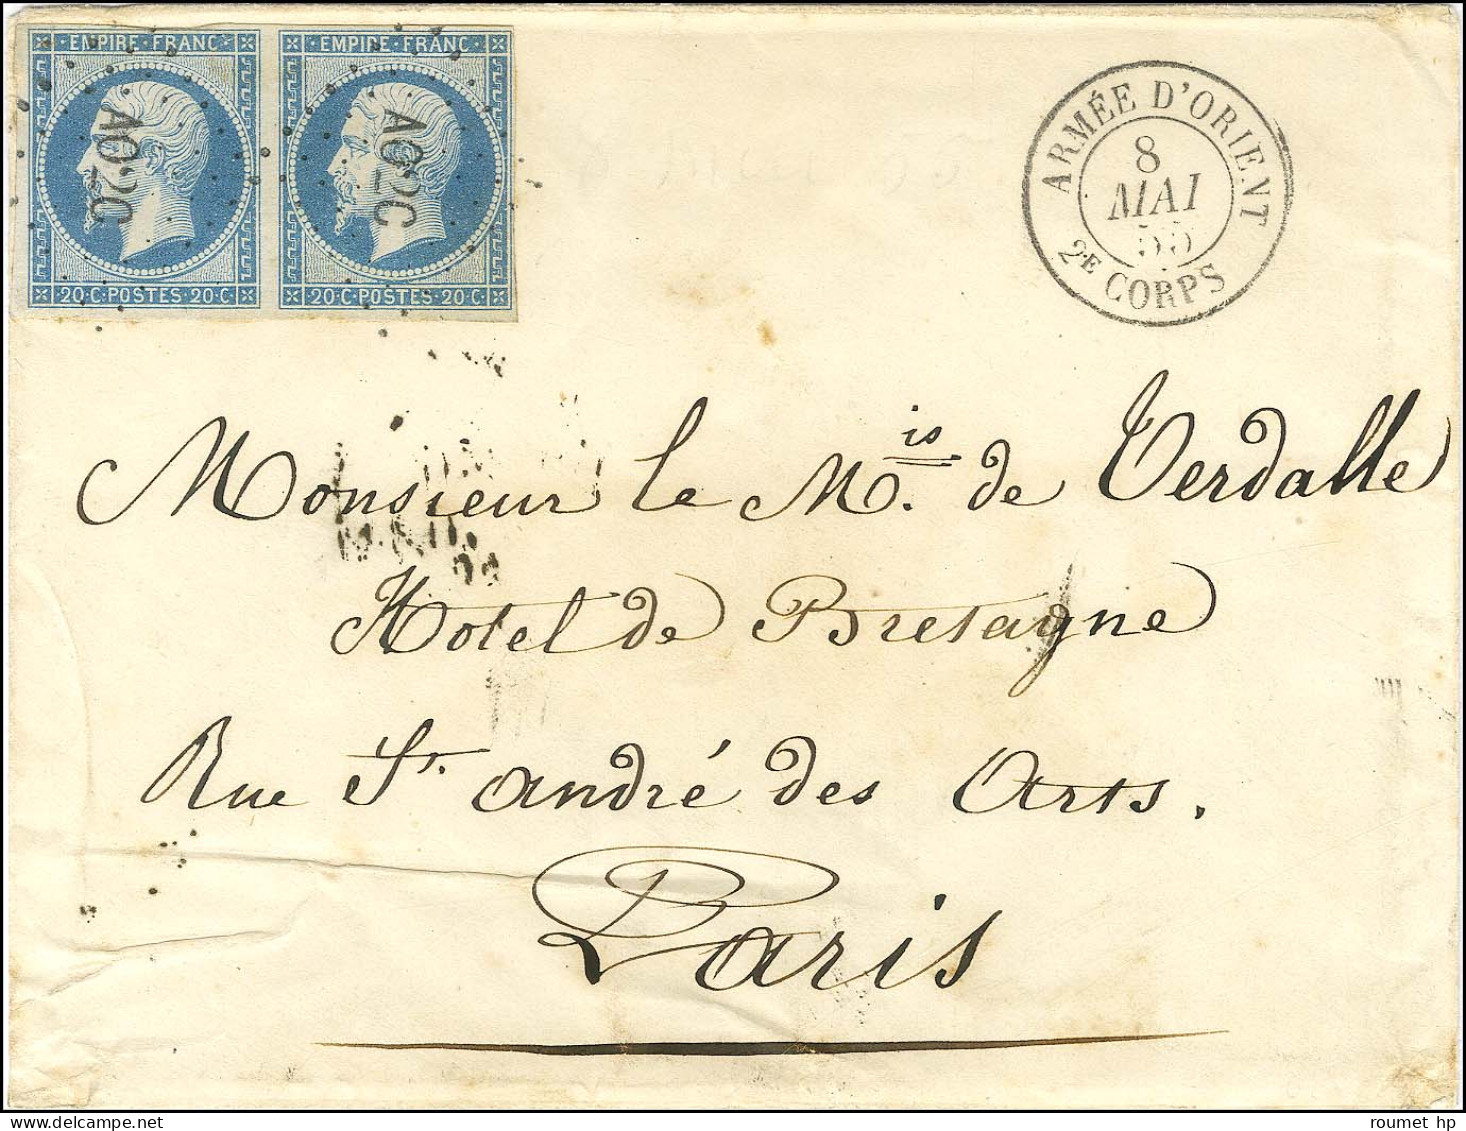 EMPIRE·FRANC· EMPIRE·FRANC·
AO2C AO2C
20·C·POSTES·20·C· 20·C·POSTES·20·C·
ARMÉE D'ORIENT
8
MAI
55
2E CORPS
Monsieur le M.is de Verdalle
Hotel de Bretagne
Rue St. andré des Arts.
Paris
roumet hp